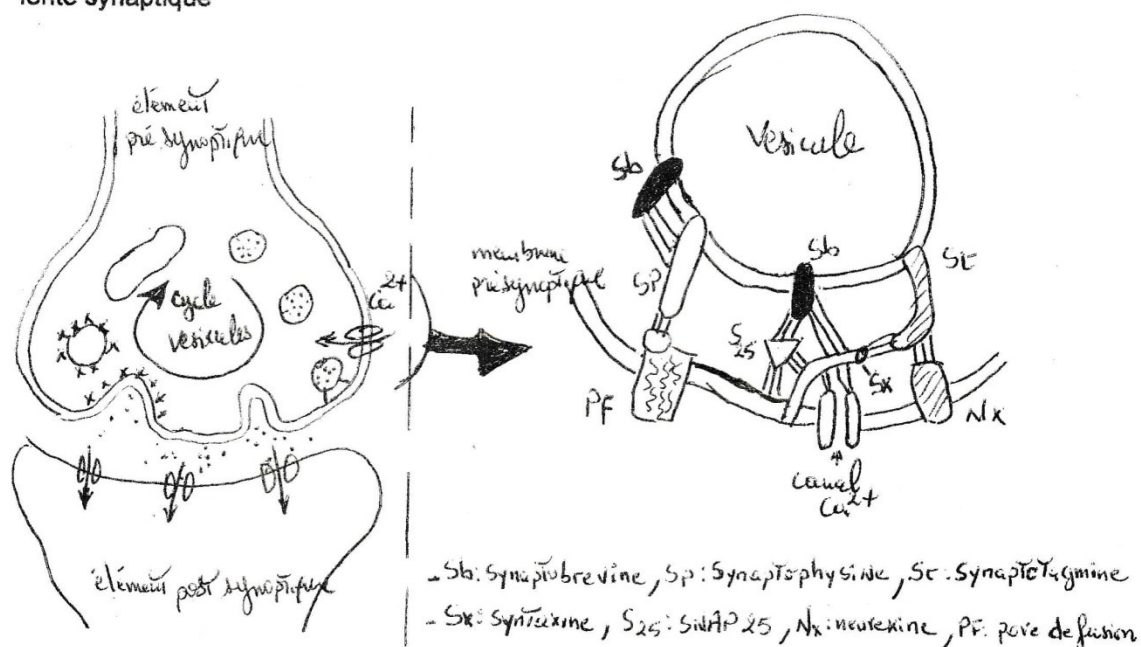 fente synaptique
élément
pré synaptique
cycle
vesicules
Ca2+
élément post synaptique
Vesicule
Sb
membrane
présynaptique
SP
Sb
St
S25
Sx
PF
Nx
canal
Ca2+
- Sb: Synaptobrevine, Sp: Synaptophysine, St: Synaptotagmine
- Sx: Syntaxine, S25: SNAP 25, Nx: neurexine, PF: pore de fusion